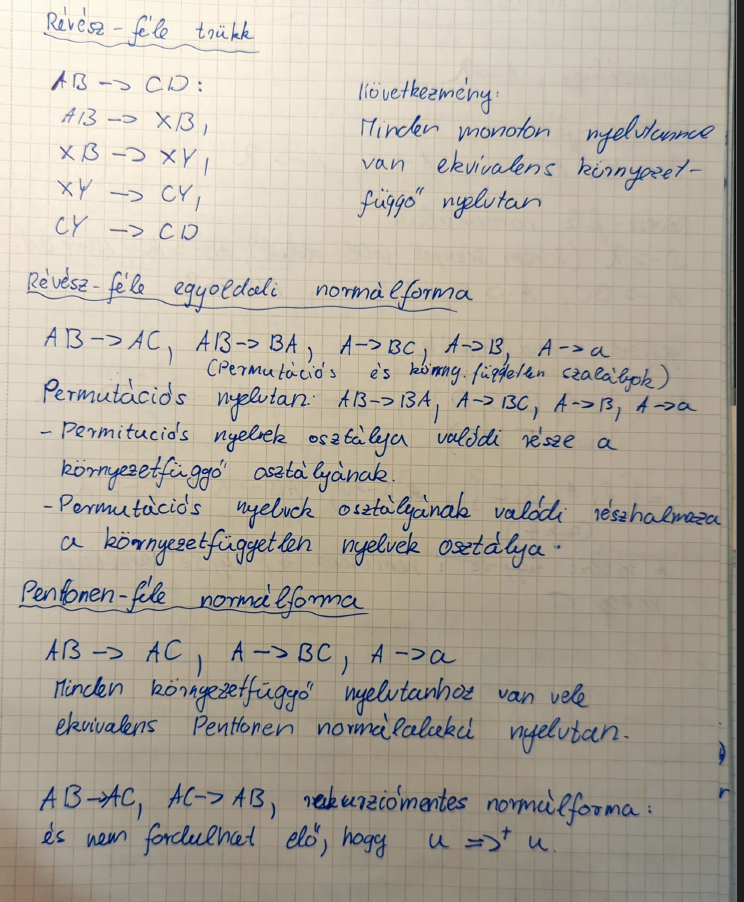 Révész-féle trükk
AB -> CD:
AB -> XB,
XB -> XY,
XY -> CY,
CY -> CD
Következmény:
Minden monoton nyelvtannak
van ekvivalens környezet-
függő nyelvtan
Révész-féle egyoldali normálforma
AB -> AC, AB -> BA, A -> BC, A -> B, A -> a
(Permutációs és körny. független szabályok)
Permutációs nyelvtan: AB -> BA, A -> BC, A -> B, A -> a
- Permituciós nyelvek osztálya valódi része a
környezetfüggő osztályának.
- Permutációs nyelvek osztályának valódi részhalmaza
a környezetfüggetlen nyelvek osztálya.
Penttonen-féle normálforma
AB -> AC, A -> BC, A -> a
Minden környezetfüggő nyelvtanhoz van vele
ekvivalens Penttonen normálalakú nyelvtan.
AB -> AC, AC -> AB, rekurziómentes normálforma:
és nem fordulhat elő, hogy u =>+ u.